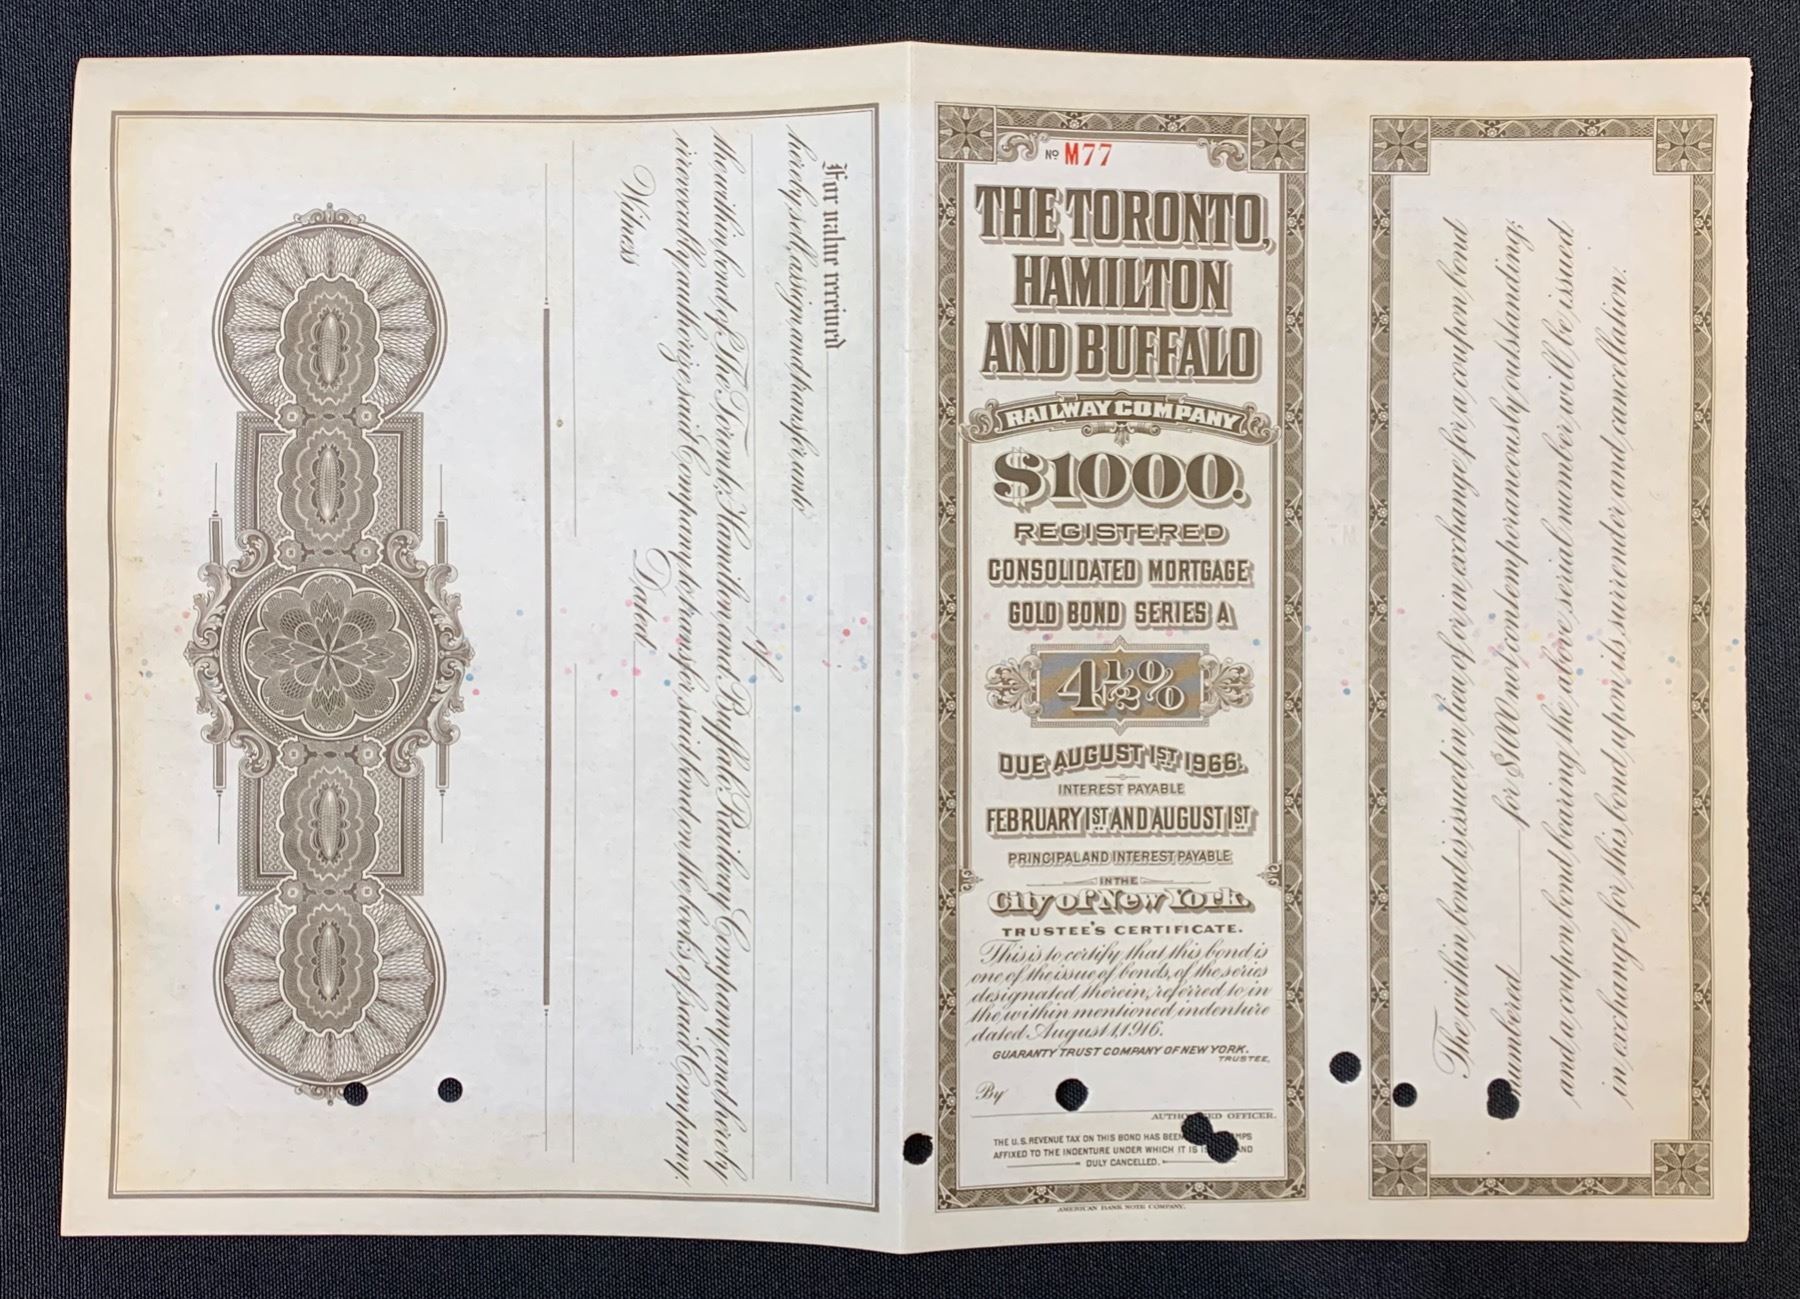 For value received
hereby sell, assign and transfer unto
of
the within bond of The Toronto, Hamilton and Buffalo Railway Company, and hereby
irrevocably authorize said Company to transfer said bond on the books of said Company.
Dated
Witness
No M77
THE TORONTO,
HAMILTON
AND BUFFALO
RAILWAY COMPANY
$1000.
REGISTERED
CONSOLIDATED MORTGAGE
GOLD BOND SERIES A
4½%
DUE AUGUST 1ST 1966.
INTEREST PAYABLE
FEBRUARY 1ST AND AUGUST 1ST
PRINCIPAL AND INTEREST PAYABLE
IN THE
City of New York.
TRUSTEE'S CERTIFICATE.
This is to certify that this bond is
one of the issue of bonds, of the series
designated therein, referred to in
the within mentioned indenture
dated August 1, 1916.
GUARANTY TRUST COMPANY OF NEW YORK.
TRUSTEE,
By
OFFICER.
THE U.S. REVENUE TAX ON THIS BOND HAS BEEN
AFFIXED TO THE INDENTURE UNDER WHICH IT IS AND
DULY CANCELLED.
AMERICAN BANK NOTE COMPANY.
The within bond is issued in lieu of or in exchange for, a coupon bond
numbered for $1000 not contemporaneously outstanding;
and a coupon bond bearing the above serial number will be issued
in exchange for this bond, upon its surrender and cancellation.